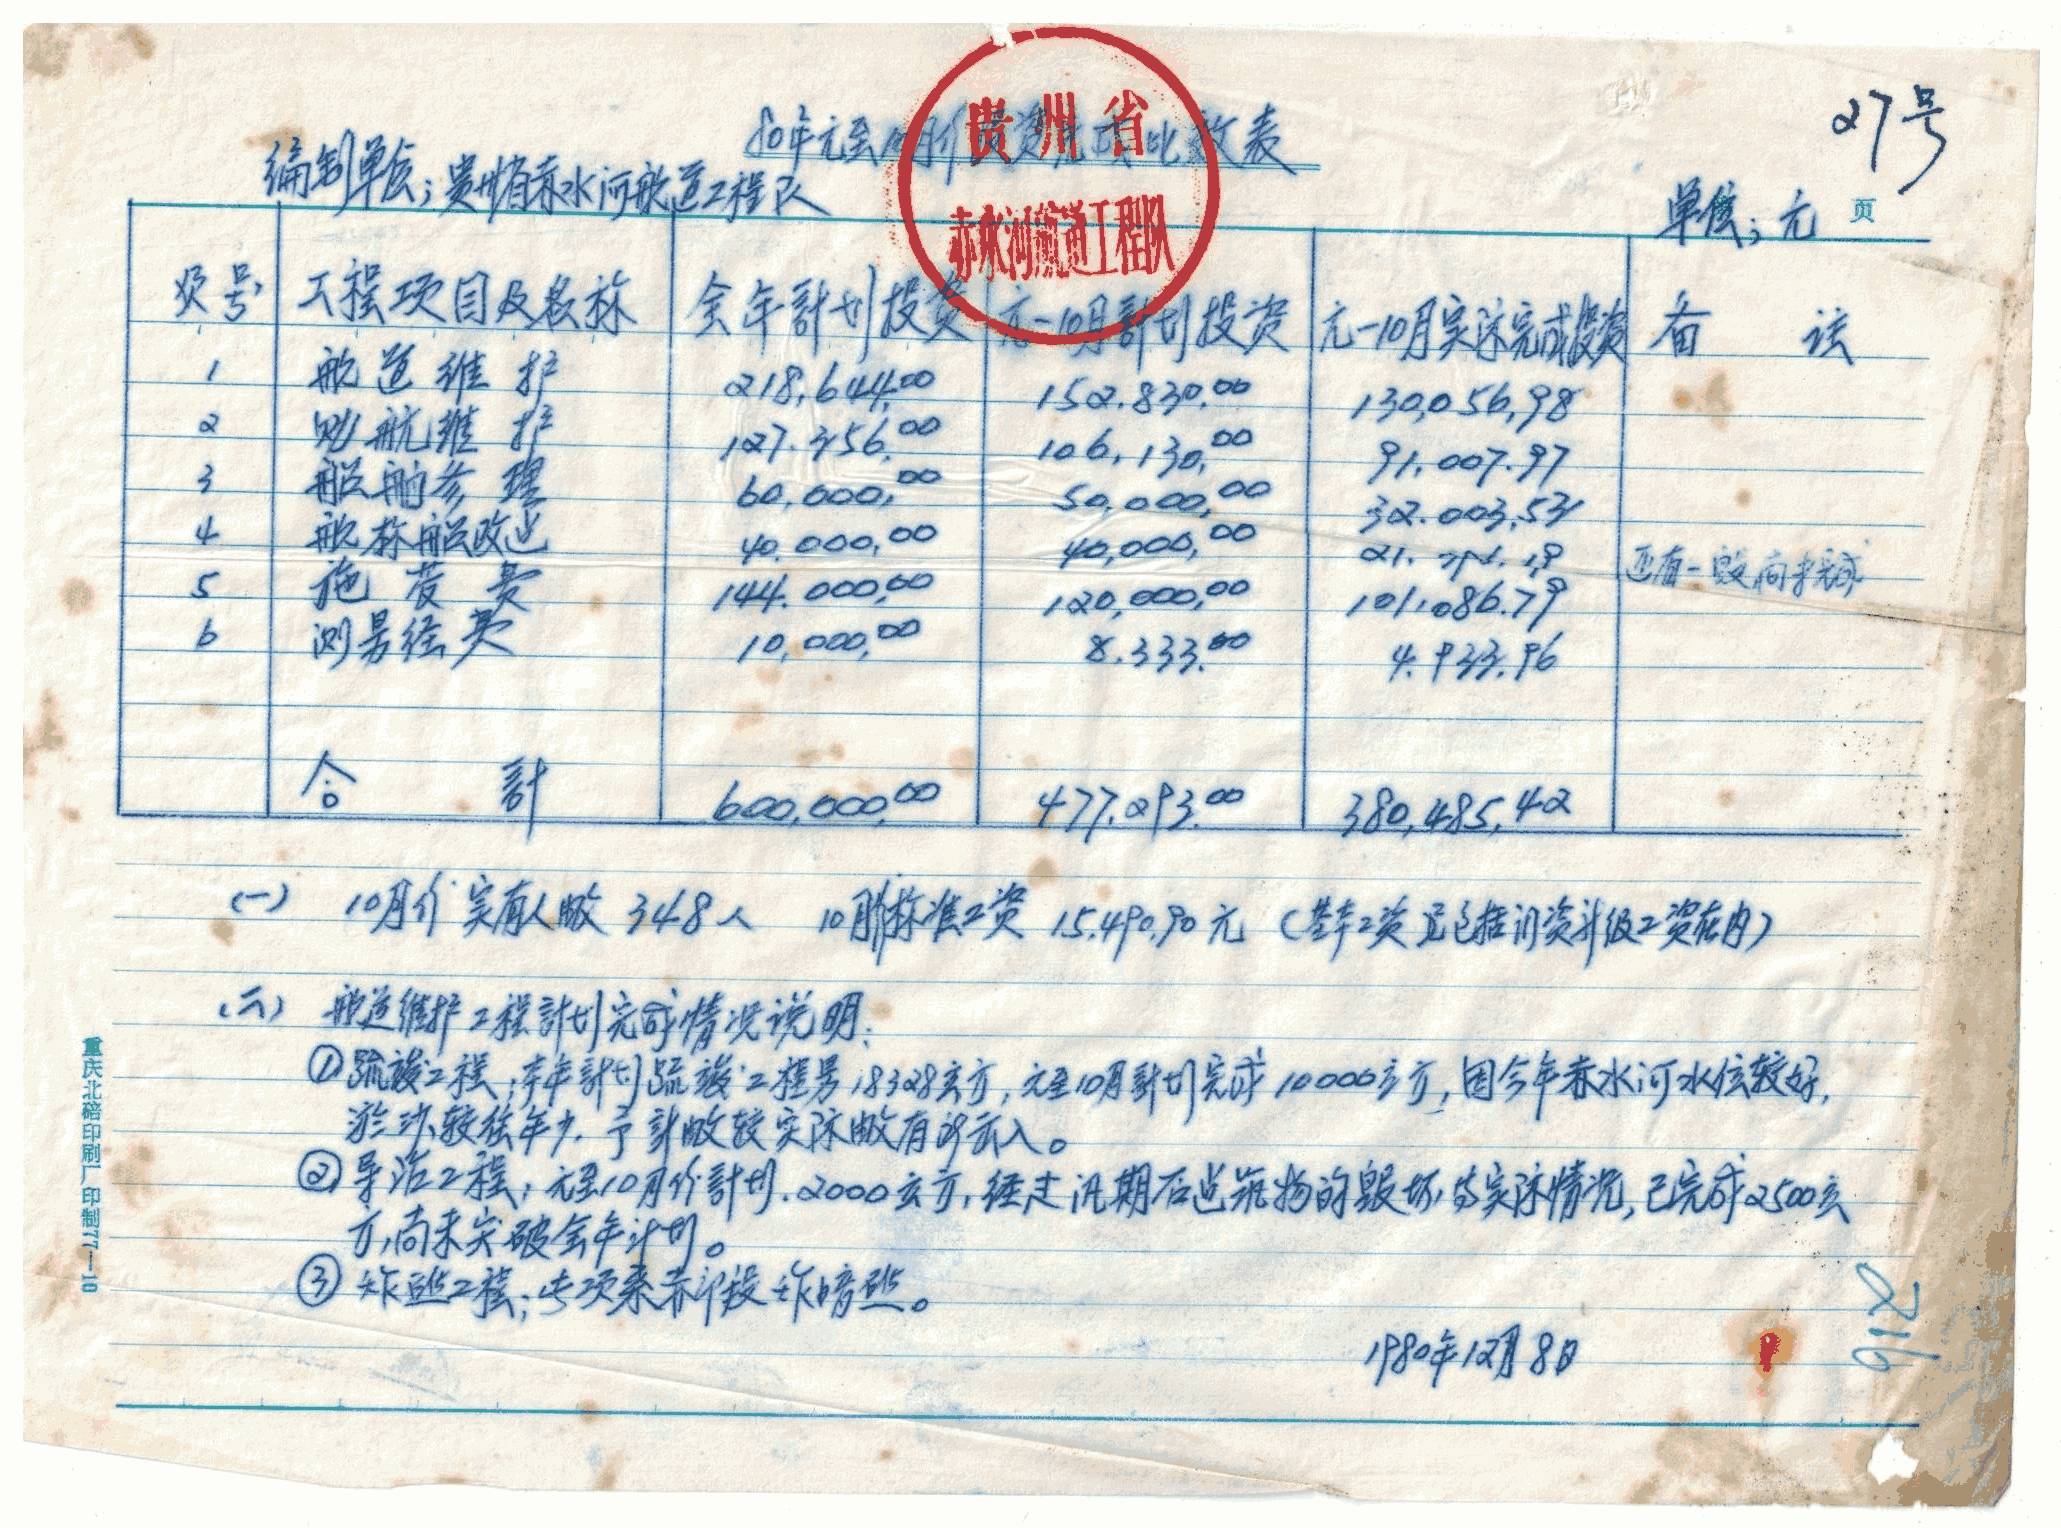 27号
80年元至10月份投资完成比较表
贵州省
赤水河航道工程队
编制单位：贵州省赤水河航道工程队
单位：元
页
项号 工程项目及名称 全年計划投资 元-10月計划投资 元-10月实际完成投资 备 注
1 航道维护 218,644.00 152.830.00 130,056.98
2 助航维护 127.356.00 106,130.00 91.007.97
3 船舶修理 60,000.00 50,000.00 32.003.53
4 航标船改造 40.000.00 40,000.00 还有一艘尚未完成
5 施营费 144.000.00 120,000.00 101.086.79
6 测量经费 10,000.00 8.333.00 4.933.96
合 計 600,000.00 477.293.00 380,485.42
(一) 10月份实有人数 348人 10月份标准工资 15.490.90元 (基本工资是包括调资升级工资在内)
(二) 航道维护工程計划完成情况说明:
①疏浚工程;本年計划疏浚工程量18328立方,元至10月計划完成10000立方,因今年赤水河水位较好,
淤沙较往年少.予計数较实际数有所出入。
②导治工程;元至10月份計划.2000立方,经过汛期后造筑物的毁坏的实际情况,已完成2500立
方,尚未突破全年计划。
③炸礁工程;此项系赤卯段炸暗礁。
1980年12月8日
216
重庆北碚印刷厂印制77—10